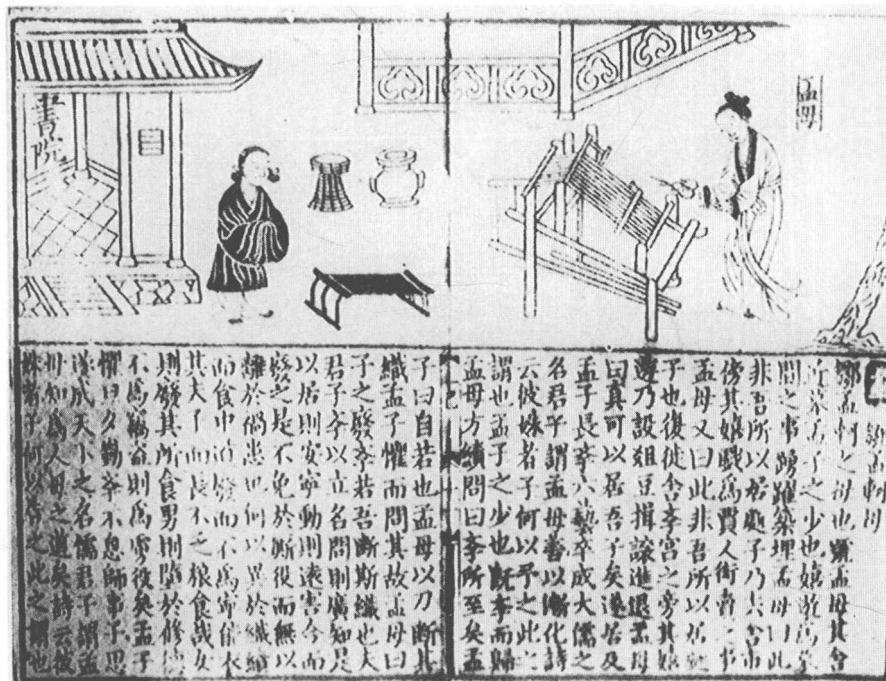 孟母
書院
鄒孟軻母
鄒孟軻之母也號孟母其舍
近墓孟子之少也嬉遊為墓
間之事踴躍築埋孟母曰此
非吾所以居處子乃去舍市
傍其嬉戲為賈人衒賣之事
孟母又曰此非吾所以居處
子也復徙舍斈宮之旁其嬉
遊乃設俎豆揖讓進退孟母
曰真可以居吾子矣遂居及
孟子長斈六藝卒成大儒之
名君子謂孟母善以漸化詩
云彼姝者子何以予之此之
謂也孟子之少也既斈而歸
孟母方績問曰斈所至矣孟
子曰自若也孟母以刀斷其
織孟子懼而問其故孟母曰
子之廢斈若吾斷斯織也夫
君子斈以立名問則廣知是
以居則安寧動則遠害今而
廢之是不免於厮役而無以
離於禍患也何以異於織績
而食中道廢而不為寧能衣
其夫子而長不乏粮食哉女
則廢其所食男則墮於修德
不為竊盜則為虜役矣孟子
懼旦夕勤斈不息師事子思
遂成天下之名儒君子謂孟
母知為人母之道矣詩云彼
姝者子何以告之此之謂也